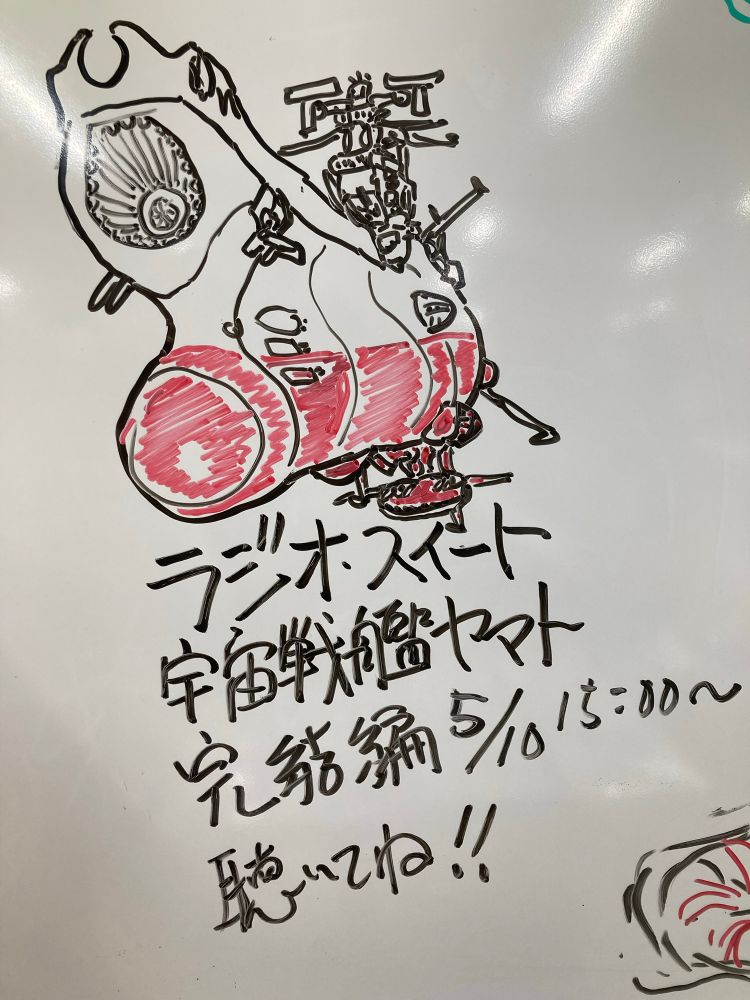 ラジオ・スイート
宇宙戦艦ヤマト
完結編 5/10 15:00〜
聴いてね!!